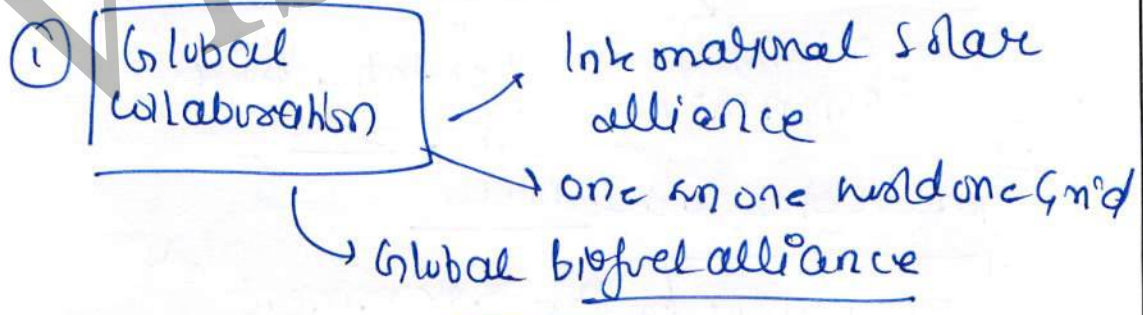 ① Global
collaboration
International Solar
alliance
one sun one world one Grid
Global biofuel alliance